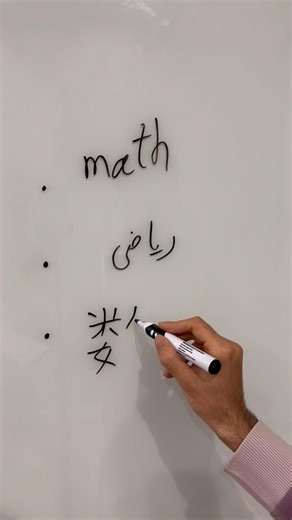 • math
• ریاضی
• 娄